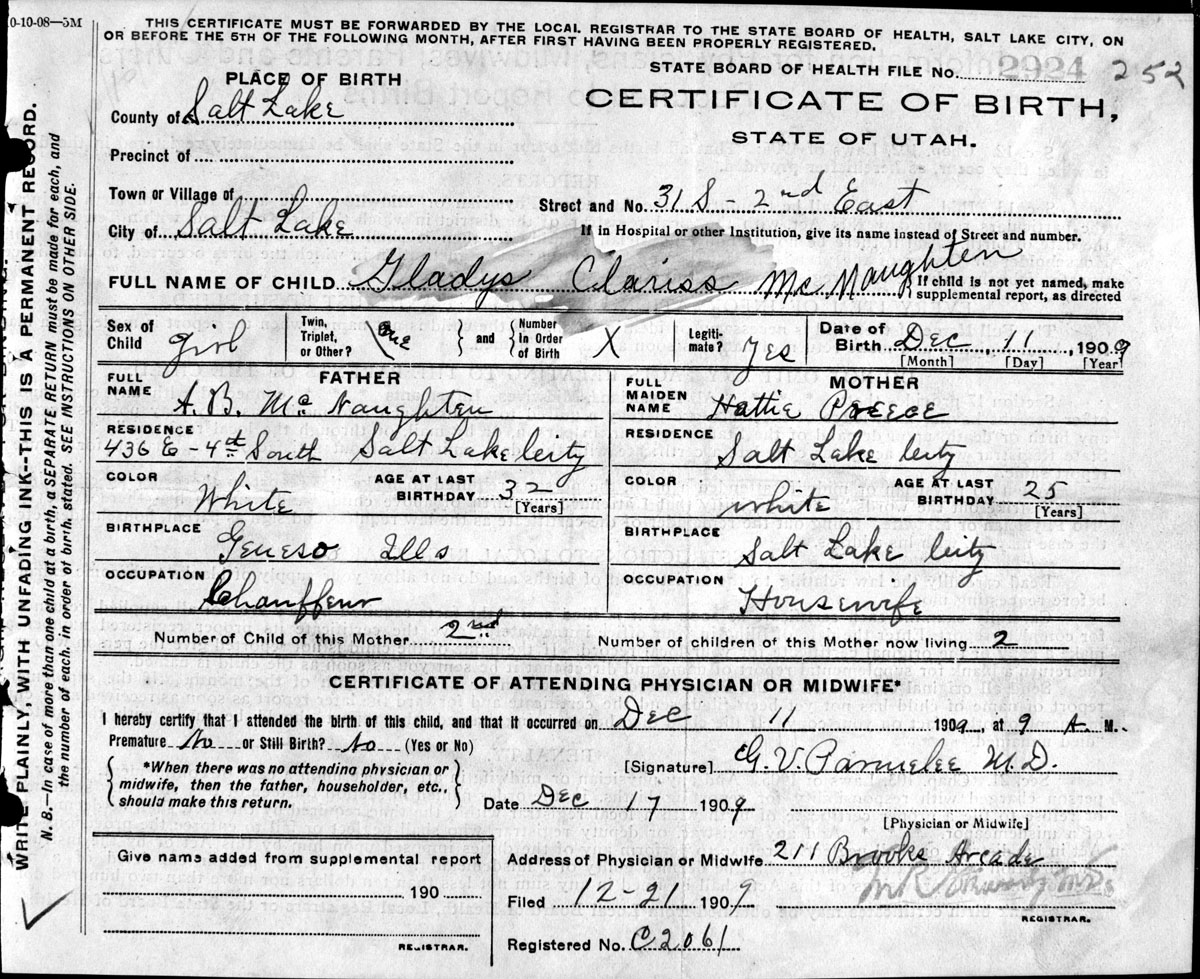 0-10-08—5M
THIS CERTIFICATE MUST BE FORWARDED BY THE LOCAL REGISTRAR TO THE STATE BOARD OF HEALTH, SALT LAKE CITY, ON
OR BEFORE THE 5TH OF THE FOLLOWING MONTH, AFTER FIRST HAVING BEEN PROPERLY REGISTERED.
STATE BOARD OF HEALTH FILE No. 2924 252
CERTIFICATE OF BIRTH,
STATE OF UTAH.
PLACE OF BIRTH
County of Salt Lake
Precinct of
Town or Village of
Street and No. 31 S - 2nd East
City of Salt Lake
If in Hospital or other Institution, give its name instead of Street and number.
FULL NAME OF CHILD Gladys Clariss McNaughten
{ If child is not yet named, make
supplemental report, as directed
Sex of Child girl
Twin, Triplet, or Other? One } and { Number in Order of Birth X
Legitimate? Yes
Date of Birth Dec 11, 1909
[Month] [Day] [Year]
FATHER
FULL NAME A. B. McNaughten
RESIDENCE 436 E - 4th South Salt Lake City
COLOR White
AGE AT LAST BIRTHDAY 32
[Years]
BIRTHPLACE Geneso Ills
OCCUPATION Chauffeur
MOTHER
FULL MAIDEN NAME Hattie Preece
RESIDENCE Salt Lake City
COLOR white
AGE AT LAST BIRTHDAY 25
[Years]
BIRTHPLACE Salt Lake City
OCCUPATION Housewife
Number of Child of this Mother 2nd
Number of children of this Mother now living 2
CERTIFICATE OF ATTENDING PHYSICIAN OR MIDWIFE*
I hereby certify that I attended the birth of this child, and that it occurred on Dec 11 1909, at 9 A. M.
Premature No or Still Birth? No (Yes or No)
{ *When there was no attending physician or
midwife, then the father, householder, etc.,
should make this return. }
[Signature] G. V. Parmelee M.D.
Date Dec 17 1909
[Physician or Midwife]
Give name added from supplemental report
190
REGISTRAR.
Address of Physician or Midwife 211 Brooks Arcade
Filed 12-21 1909
REGISTRAR.
Registered No. C2061
WRITE PLAINLY, WITH UNFADING INK--THIS IS A PERMANENT RECORD.
N. B.—In case of more than one child at a birth, a SEPARATE RETURN must be made for each, and
the number of each, in order of birth, stated. SEE INSTRUCTIONS ON OTHER SIDE.